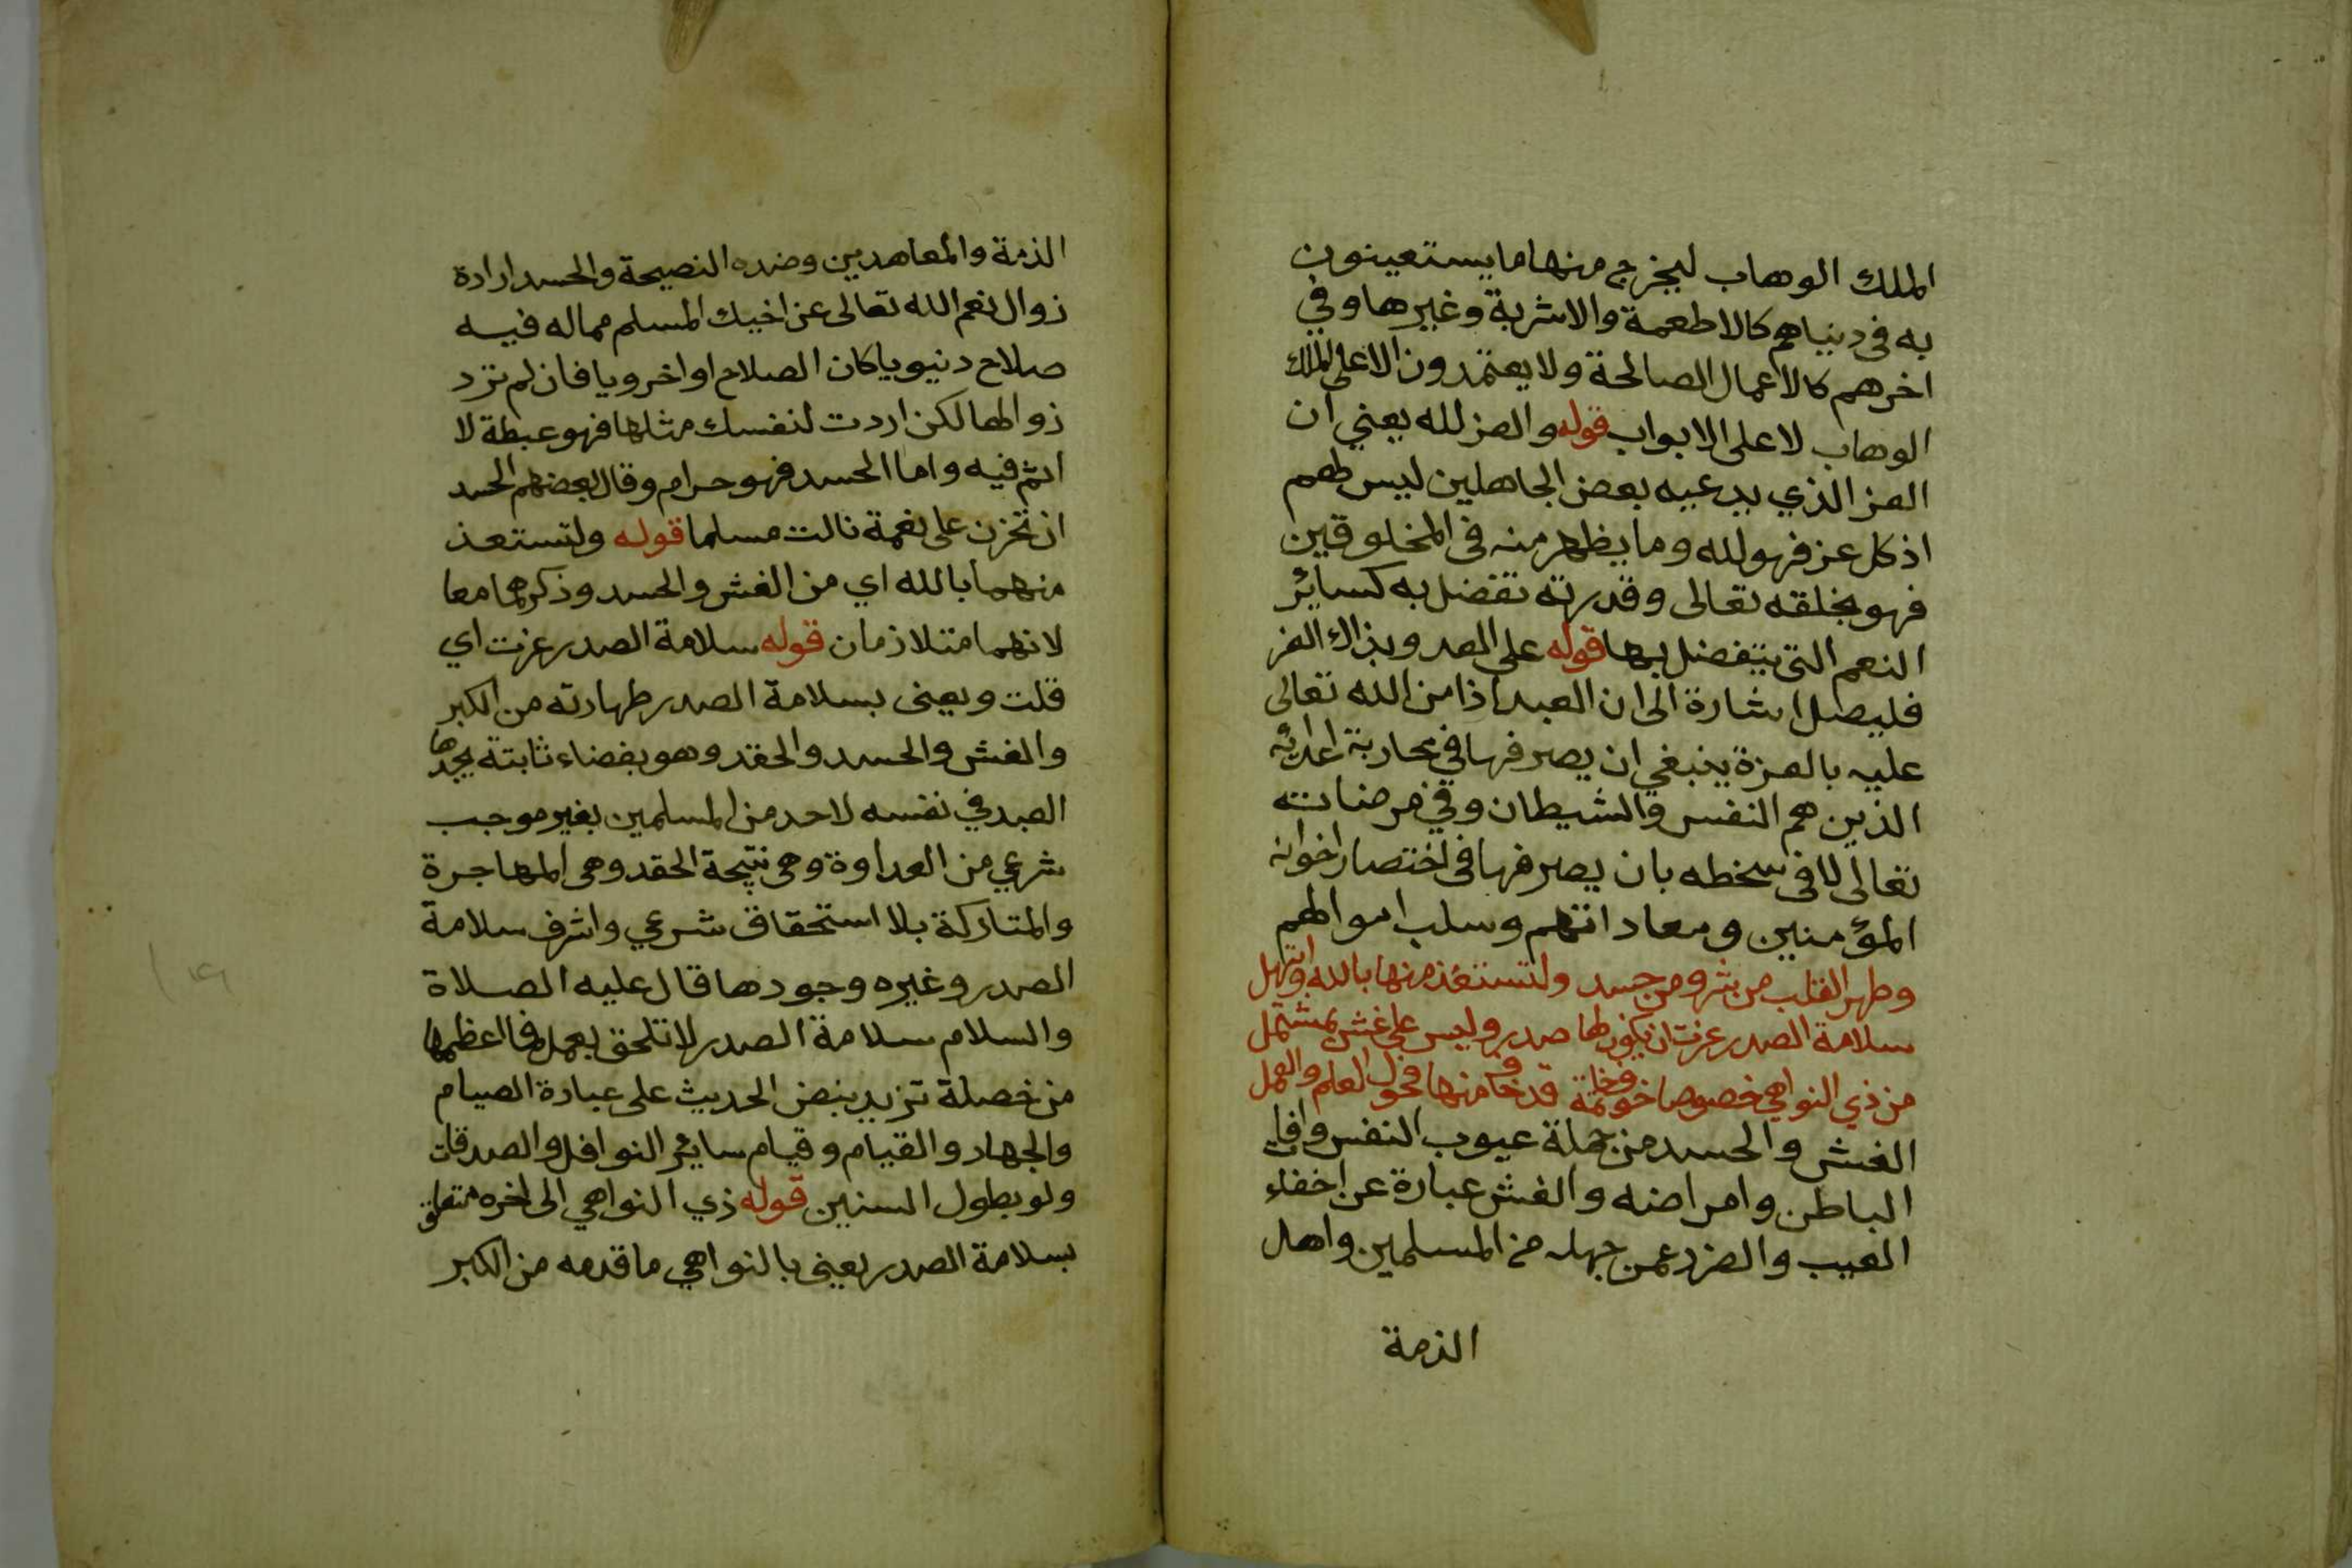 الملك الوهاب ليخرج منها ما يستعينون
به في دنياهم كالاطعمة والاشربة وغيرها وفي
اخرهم كالاعمال الصالحة ولا يعتمدون الا على الملك
الوهاب لا على الابواب قوله والعز لله يعني ان
العز الذي يدعيه بعض الجاهلين ليس لهم
اذ كل عز فهو لله وما يظهر منه في المخلوقين
فهو بخلقه تعالى وقدرته تفضل به كسائر
النعم التي يتفضل بها قوله على العدو بذاك العز
فليصل اشارة الى ان العبد اذا من الله تعالى
عليه بالعزة ينبغي ان يصرفها في محاربة اعدائه
الذين هم النفس والشيطان وفي مرضاته
تعالى لا في سخطه بان يصرفها في اختصار اخوانه
المؤمنين ومعاداتهم وسلب اموالهم
وطهر القلب من شر ومن حسد ولتستعذ منها بالله وابتهل
سلامة الصدر عزت ان يكون لها صدر وليس على غش بمشتمل
من ذي النواهي خصوصا خوفخاتمة قد خاف منها فحول العلم والعمل
الغش والحسد من جملة عيوب النفس وافات
الباطن وامراضه والغش عبارة عن اخفاء
العيب والضرر عمن جهله من المسلمين واهل
الذمة
الذمة والمعاهدين وضده النصيحة والحسد ارادة
زوال نعم الله تعالى عن اخيك المسلم مما له فيه
صلاح دنيويا كان الصلاح او اخرويا فان لم ترد
زوالها لكن اردت لنفسك مثلها فهو غبطة لا
اثم فيه واما الحسد فهو حرام وقال بعضهم الحسد
ان تحزن على نعمة نالت مسلما قوله ولتستعذ
منهما بالله اي من الغش والحسد وذكرهما معا
لانهما متلازمان قوله سلامة الصدر عزت اي
قلت ويعني بسلامة الصدر طهارته من الكبر
والغش والحسد والحقد وهو بغضاء ثابتة يجدها
العبد في نفسه لاحد من المسلمين بغير موجب
شرعي من العداوة وهي نتيجة الحقد وهي المهاجرة
والمتاركة بلا استحقاق شرعي واشرف سلامة
الصدر وغيره وجودها قال عليه الصلاة
والسلام سلامة الصدر لا تلحق بعمل فما اعظمها
من خصلة تزيد بنص الحديث على عبادة الصيام
والجهاد والقيام وقيام سائر النوافل والصدقات
ولو بطول السنين قوله ذي النواهي الى اخره متعلق
بسلامة الصدر يعني بالنواهي ما قدمه من الكبر